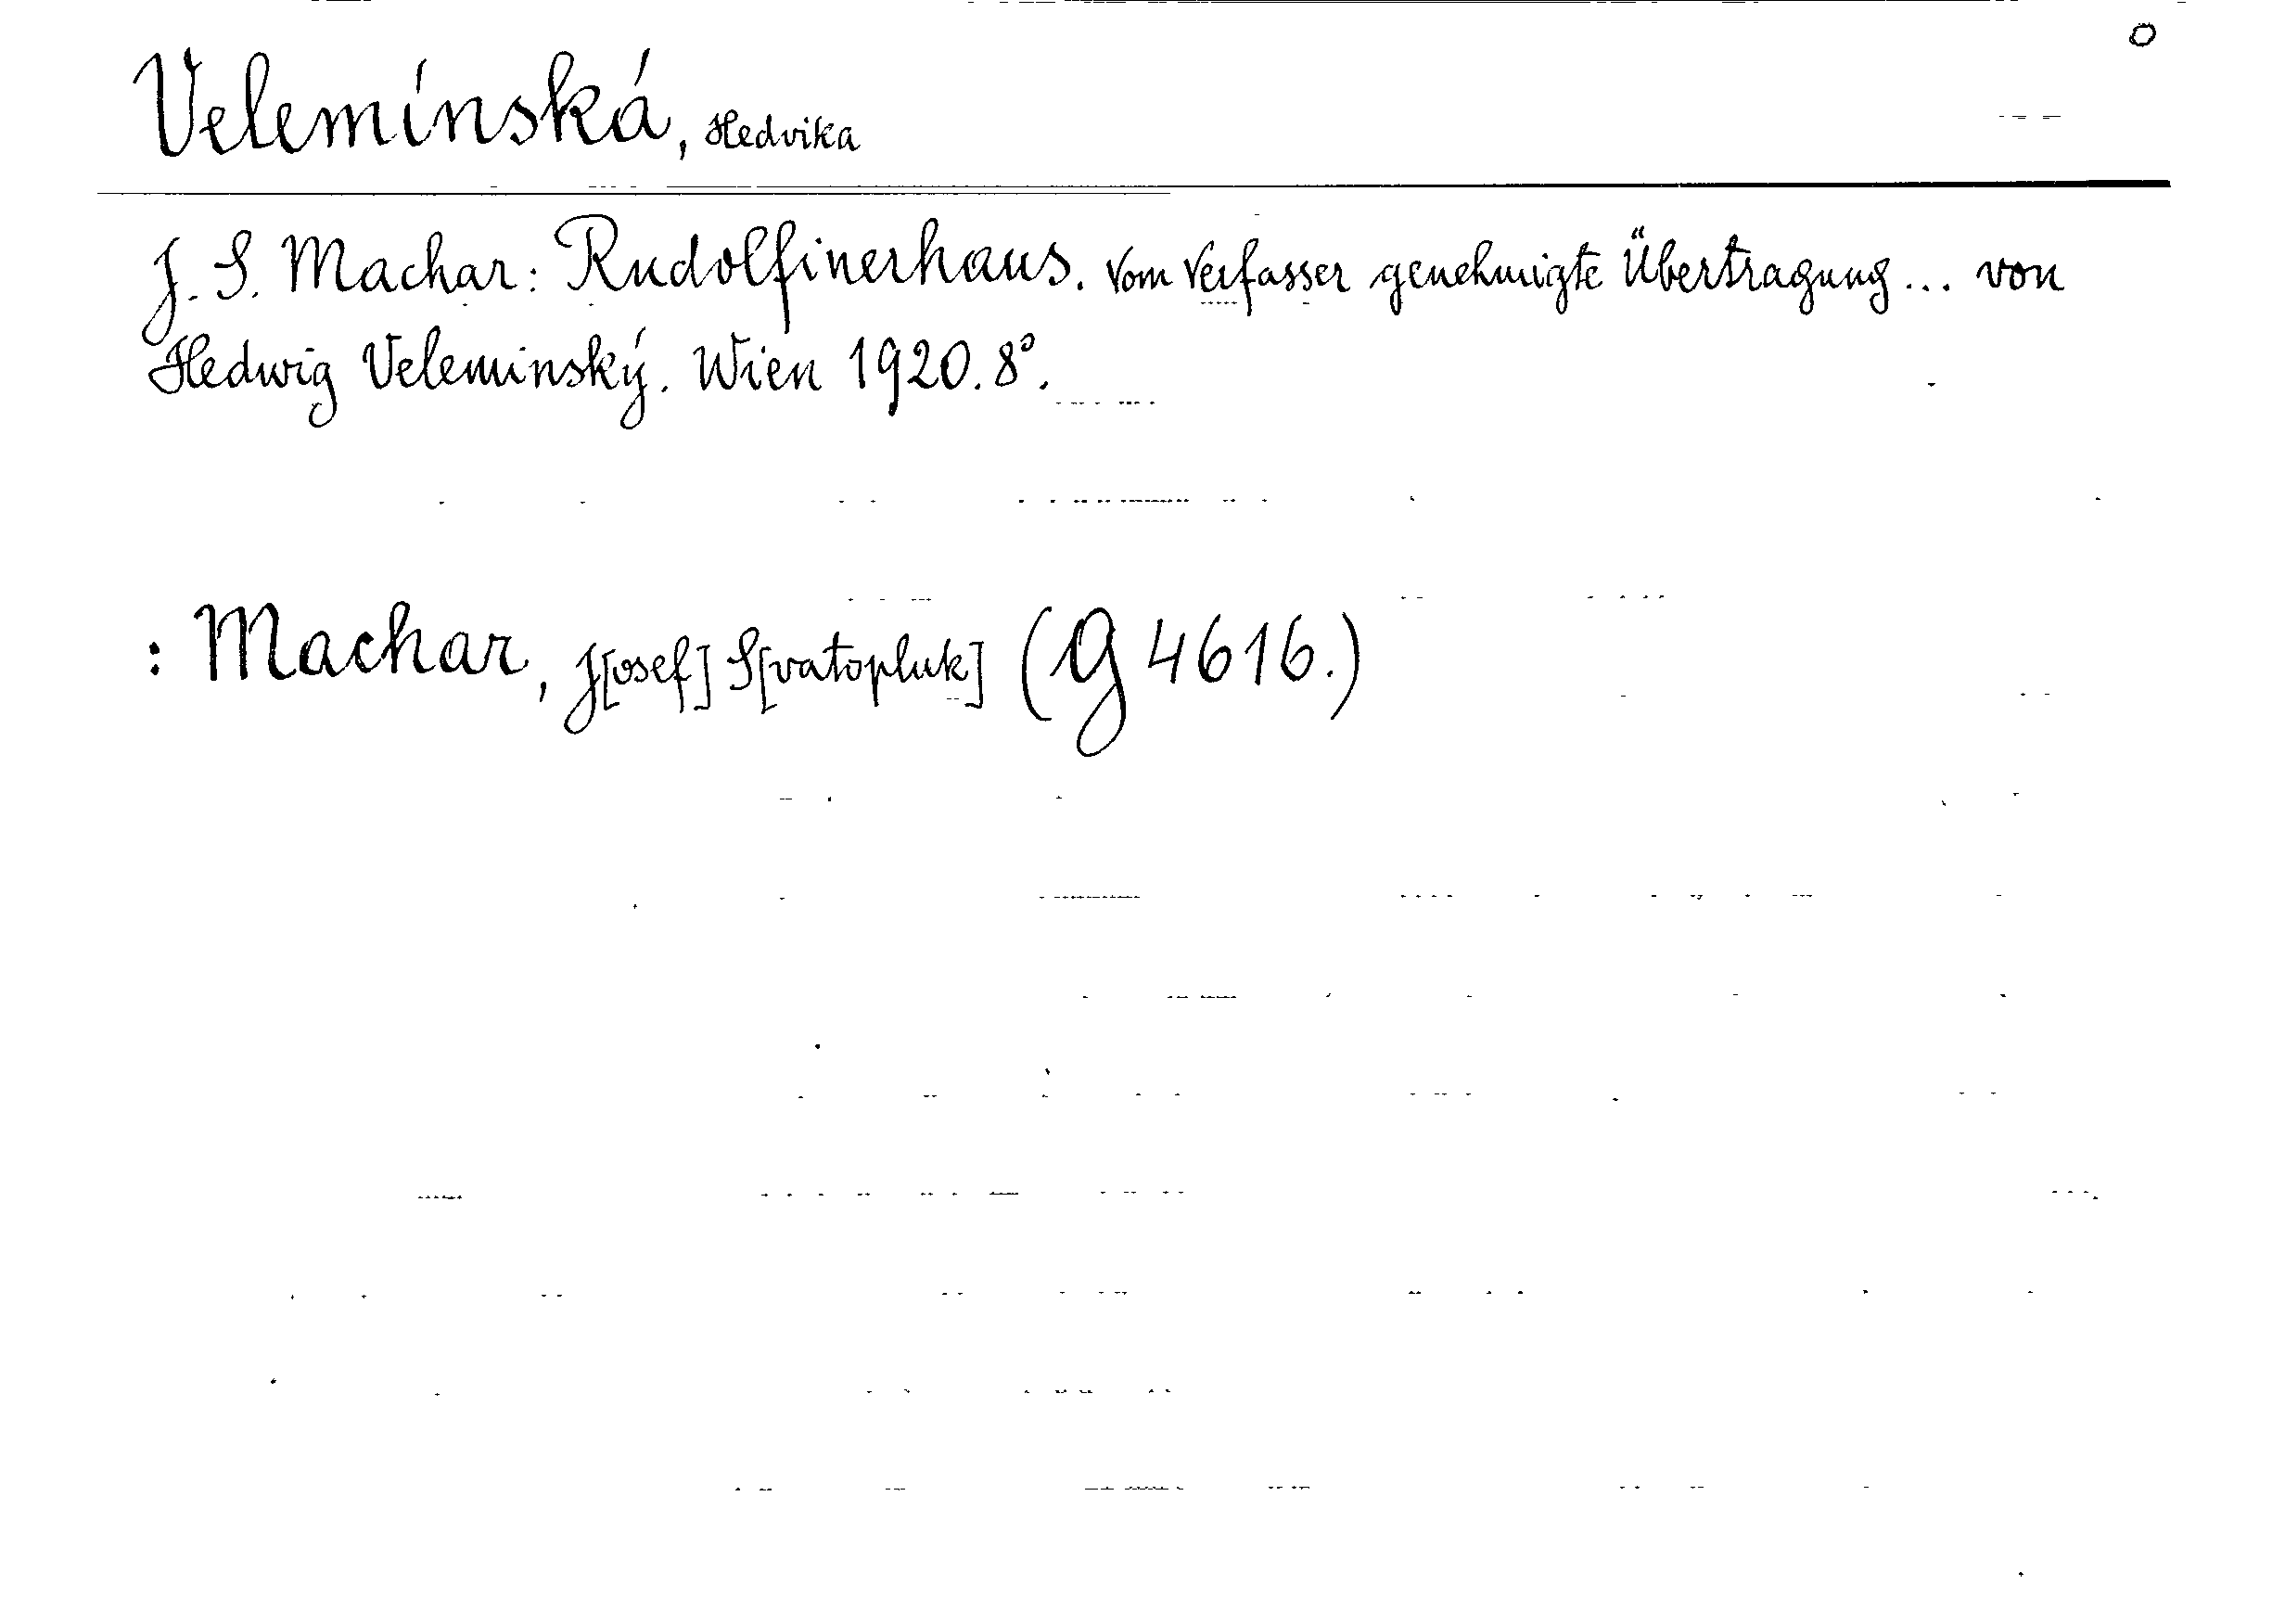 o
Velemínská, Hedvika
J. S. Machar: Rudolfinerhaus. Vom Verfasser genehmigte Übertragung... von
Hedwig Veleminský. Wien 1920. 8°.
: Machar, J[osef] S[vatopluk] (G 4616.)